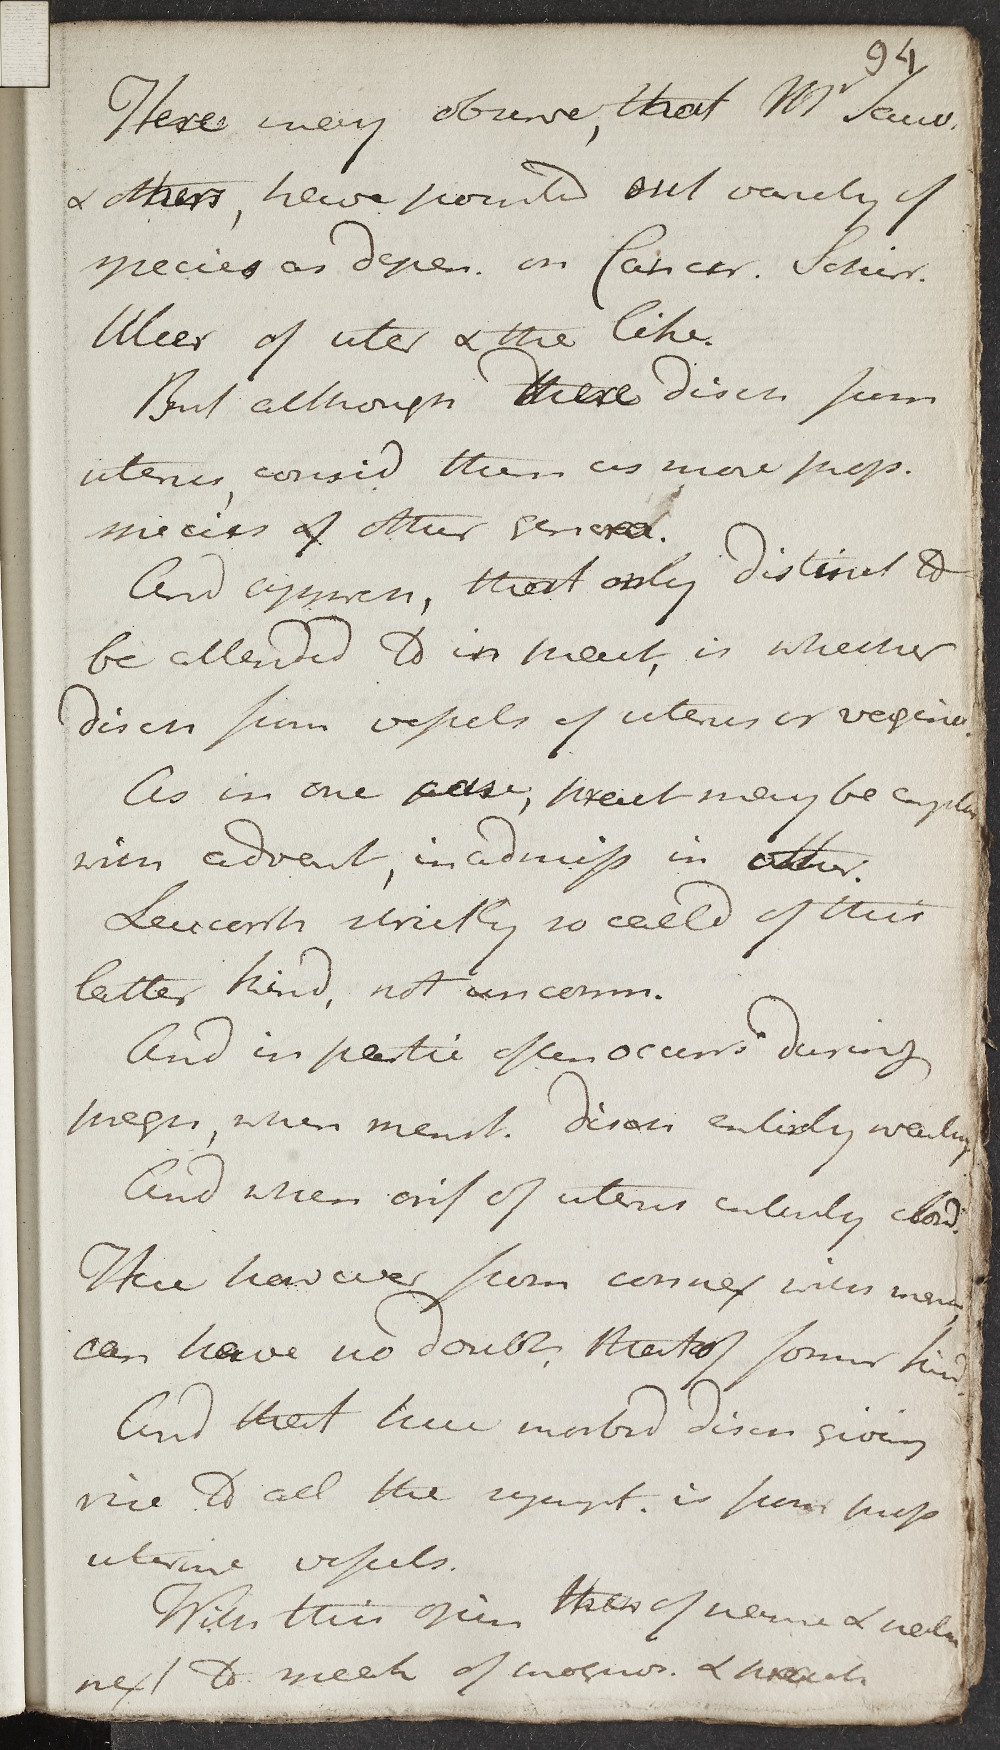 94
Here may observe, that Mr Sauv.
& others, have pointed out variety of
species as depen. on Cancer. Schirr.
Ulcer of uter & the like.
But although these disch from
uterus, consid them as more prop.
species of other genera.
And apprehen, that only distinct to
be attended to in treatt, is whether
disch from vessels of uterus or vagina.
As in one case, treatt may be employ
with advant, inadmiss in other.
Leucorrh strictly so called of this
latter kind, not uncomm.
And in partic often occurs during
pregn, when menst. disch entirely wanting
And when orif of uterus entirely closd.
Here however from connex with menst,
can have no doubt, that of former kind.
And that here morbid disch giving
rise to all the sympt. is from prop
uterine vessels.
With this opin then of name & nature
next to speak of prognos. & treatt